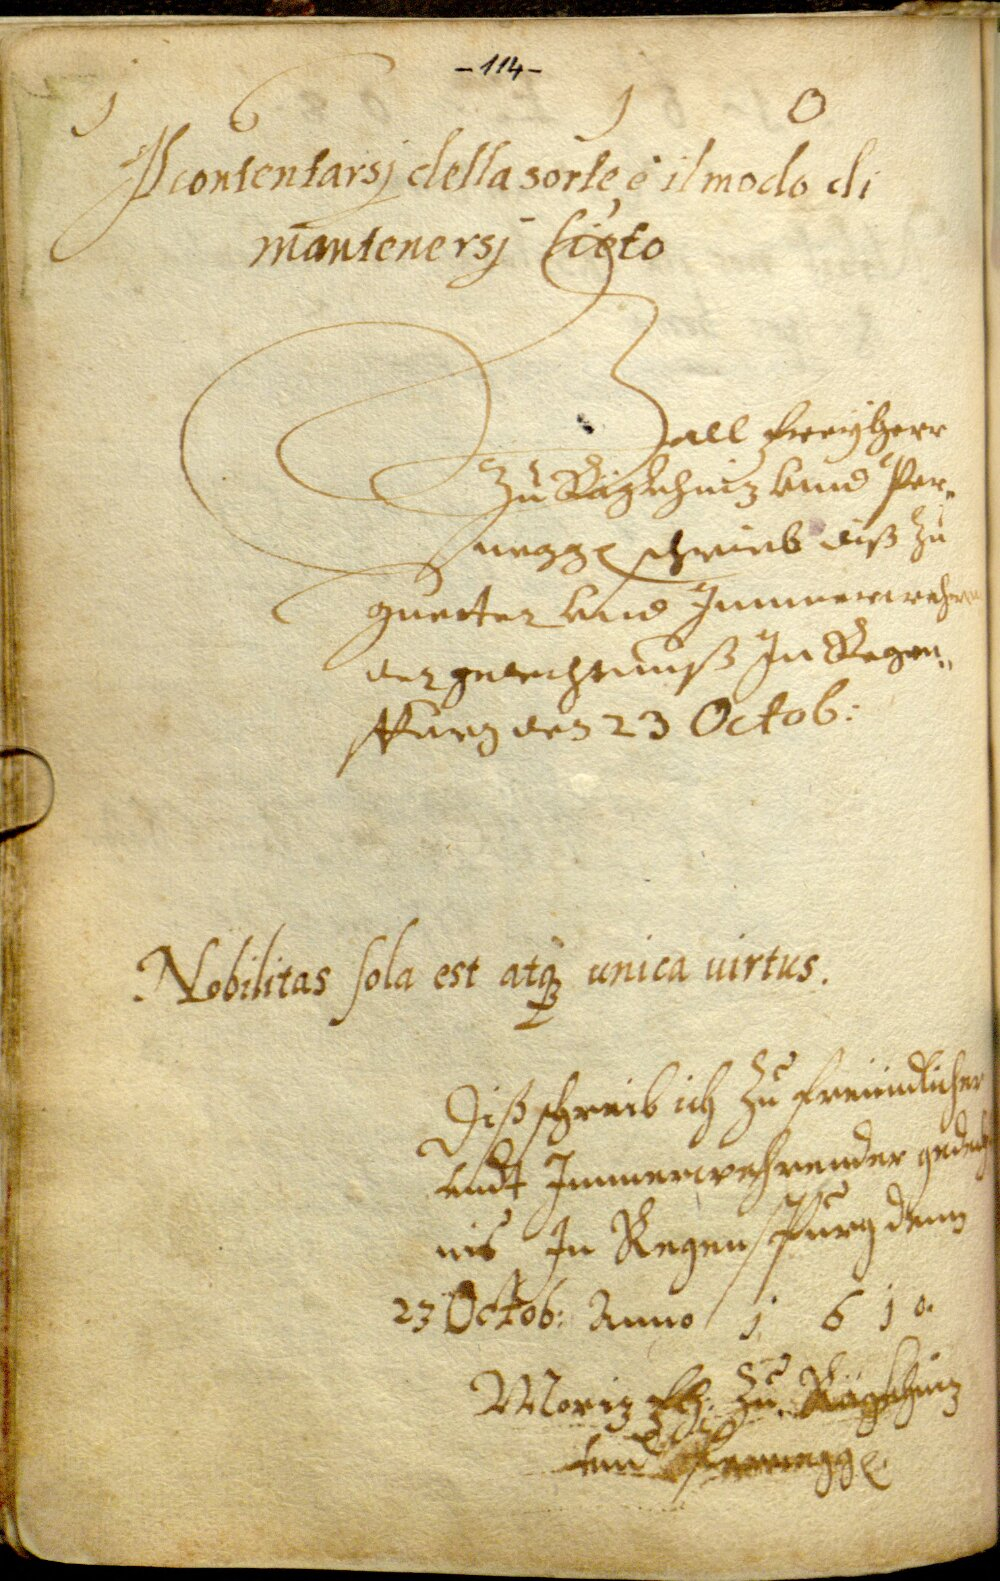 - 114 -
1 6 1 0
Il contentarsj della sorte è il modo di
mantenersj lieto
Gall Freyherr
zu Rägkhniz vnnd Per„
negg schrieb diß zu
guetter vnd Immerwehren
der gedechtnuß In Regen„
spurg den 23 Octob:
Nobilitas sola est atq; unica uirtus.
Diß schreib ich zu freündlicher
vndt Immerwehrender gedech
nis In Regenspurg denn
23 Octob: Anno 1 6 1 0.
Moriz Fh: zu Rägkhniz
vnd Pernegg